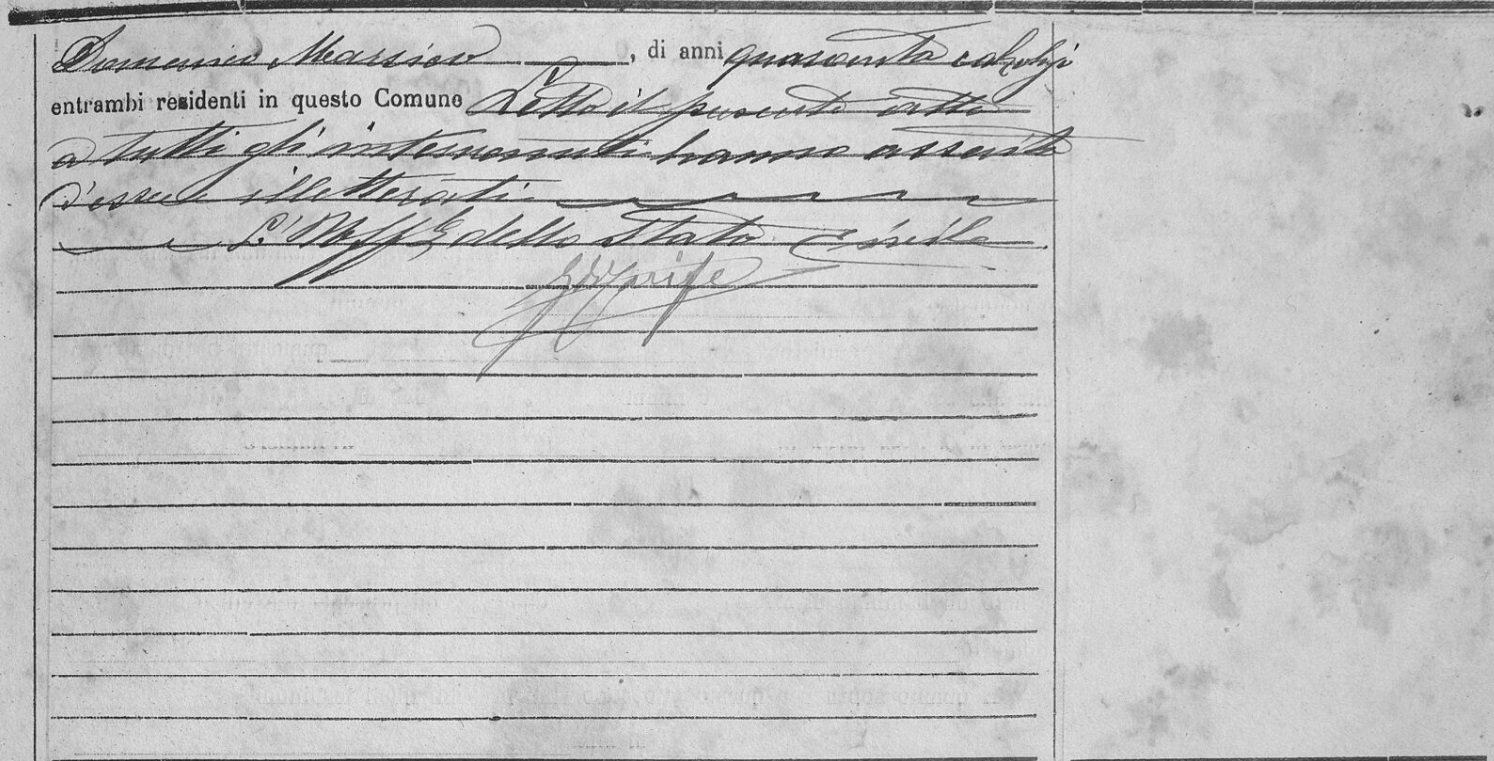 Domenico Massico, di anni quaranta calzolaj
entrambi residenti in questo Comune Letto il presente atto
a tutti gli intervenuti hanno asserito
d'essere illetterati
L'Uff.le dello Stato Civile